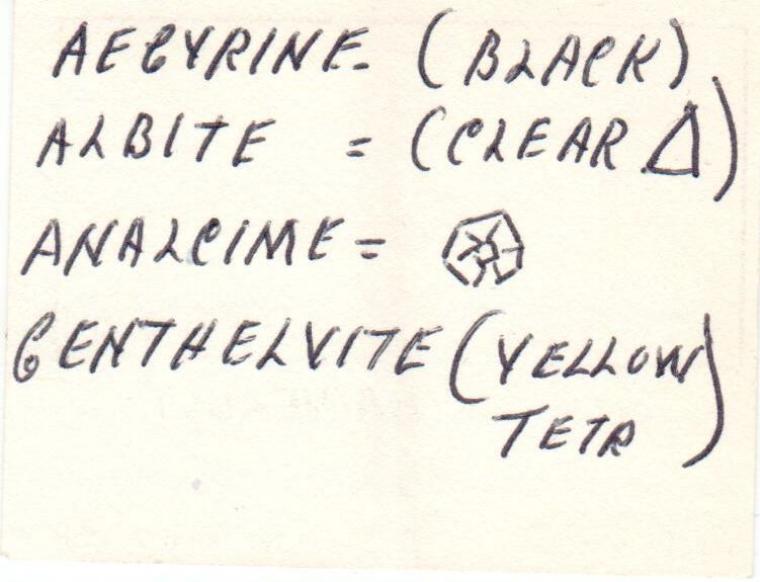 AEGYRINE - (BLACK)
ALBITE = (CLEAR Δ)
ANALCIME =
GENTHELVITE (YELLOW
TETR)